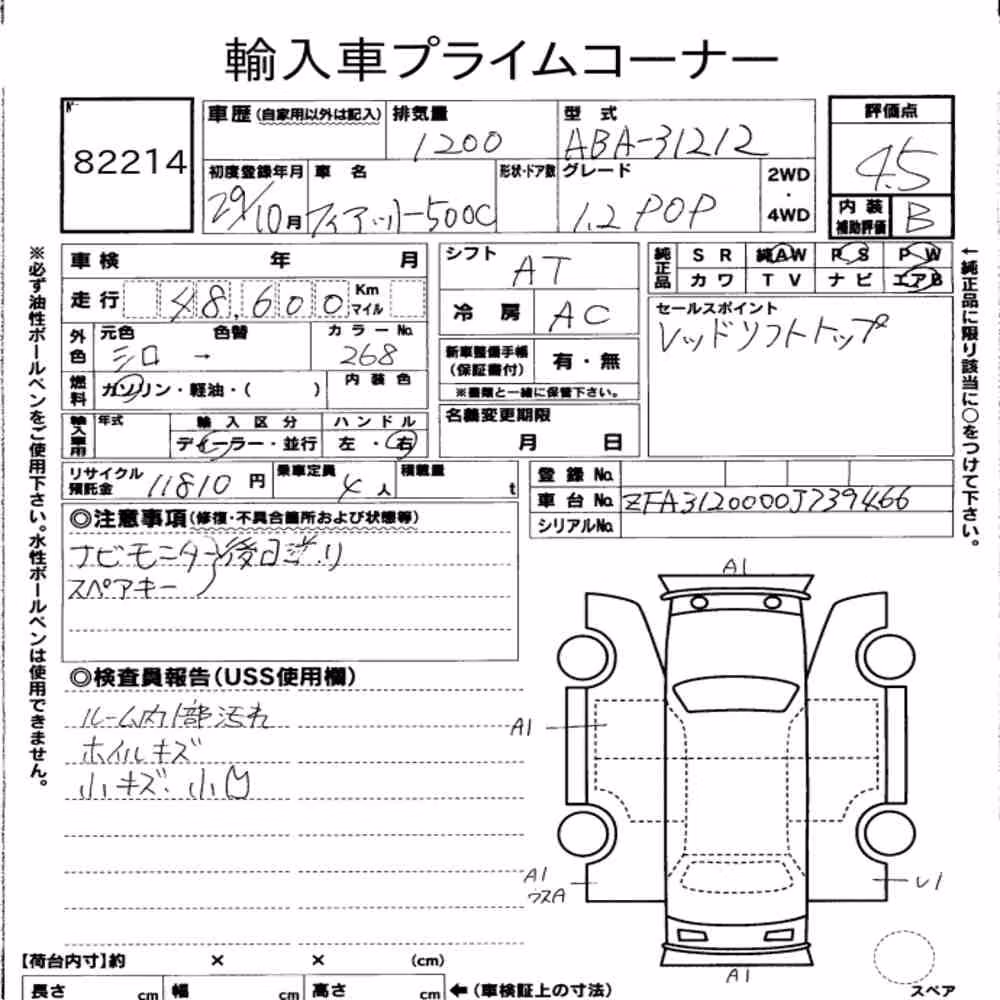 輸入車プライムコーナー
№ 82214
車歴(自家用以外は記入) 排気量 1200 型式 ABA-31212 評価点 4.5
初度登録年月 29/10月 車名 フィアット500C 形状・ドア数 グレード 1.2 POP 2WD・4WD 内装補助評価 B
※必ず油性ボールペンをご使用下さい。水性ボールペンは使用できません。
車検 年 月
走行 48,600 Km マイル
外色 元色 シロ 色替 → カラーNo. 268
燃料 ガソリン・軽油・( ) 内装色
輸入車用 年式 輸入区分 ディーラー・並行 ハンドル 左・右
シフト AT
冷房 AC
新車整備手帳(保証書付) 有・無
※書類と一緒に保管下さい。
名義変更期限
月 日
純正品 SR 純AW PS PW
カワ TV ナビ エアB
セールスポイント
レッドソフトトップ
←純正品に限り該当に○をつけて下さい。
リサイクル預託金 11810円 乗車定員 4人 積載量 t
登録No.
車台No. ZFA3120000J739466
シリアルNo.
◎注意事項(修復・不具合箇所および状態等)
ナビモニター 後日送り
スペアキー
◎検査員報告(USS使用欄)
ルーム内1部汚れ
ホイルキズ
小キズ・小凹
A1
A1
A1
ウスA
U1
A1
スペア
【荷台内寸】約 × × (cm)
長さ cm 幅 cm 高さ cm ←(車検証上の寸法)